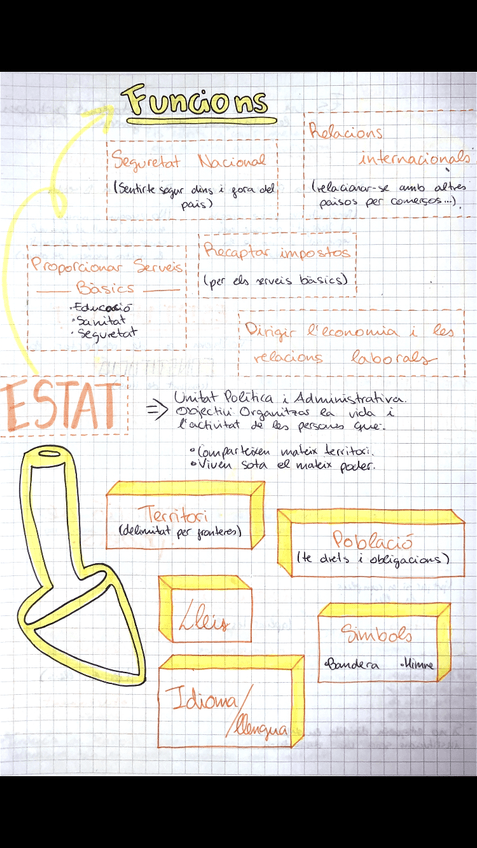 Funcions
Relacions
internacionals
(relacionar-se amb altres
països per comerços...).
Seguretat Nacional
(Sentirte segur dins i fora del
país)
Recaptar impostos
(per els serveis bàsics)
Proporcionar Serveis
Bàsics
·Educació
·Sanitat
·Seguretat
Dirigir l'economia i les
relacions laborals
ESTAT
⇒ Unitat Política i Administrativa.
Objectiu Organitzar la vida i
l'activitat de les persones que:
•Comparteixen mateix territori.
•Viven sota el mateix poder.
Territori
(delimitat per fronteres)
Població
(te drets i obligacions)
Lleis
Símbols
•Bandera •Himne
Idioma/
llengua